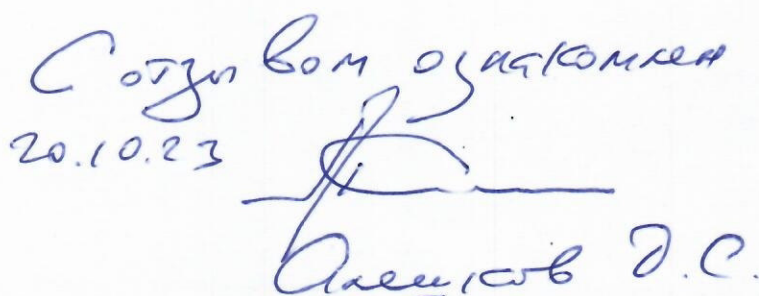 С отзывом ознакомлен
20.10.23
Алешков Д.С.